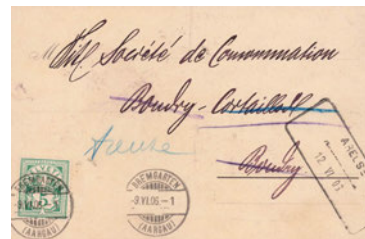 Tit. Société de Consommation
Boudry - Cortaillod
Areuse
Boudry
BREMGARTEN
9.VI.06-1
(AARGAU)
BREMGARTEN
(AARGAU)
5
AREUSE
12 VI 07